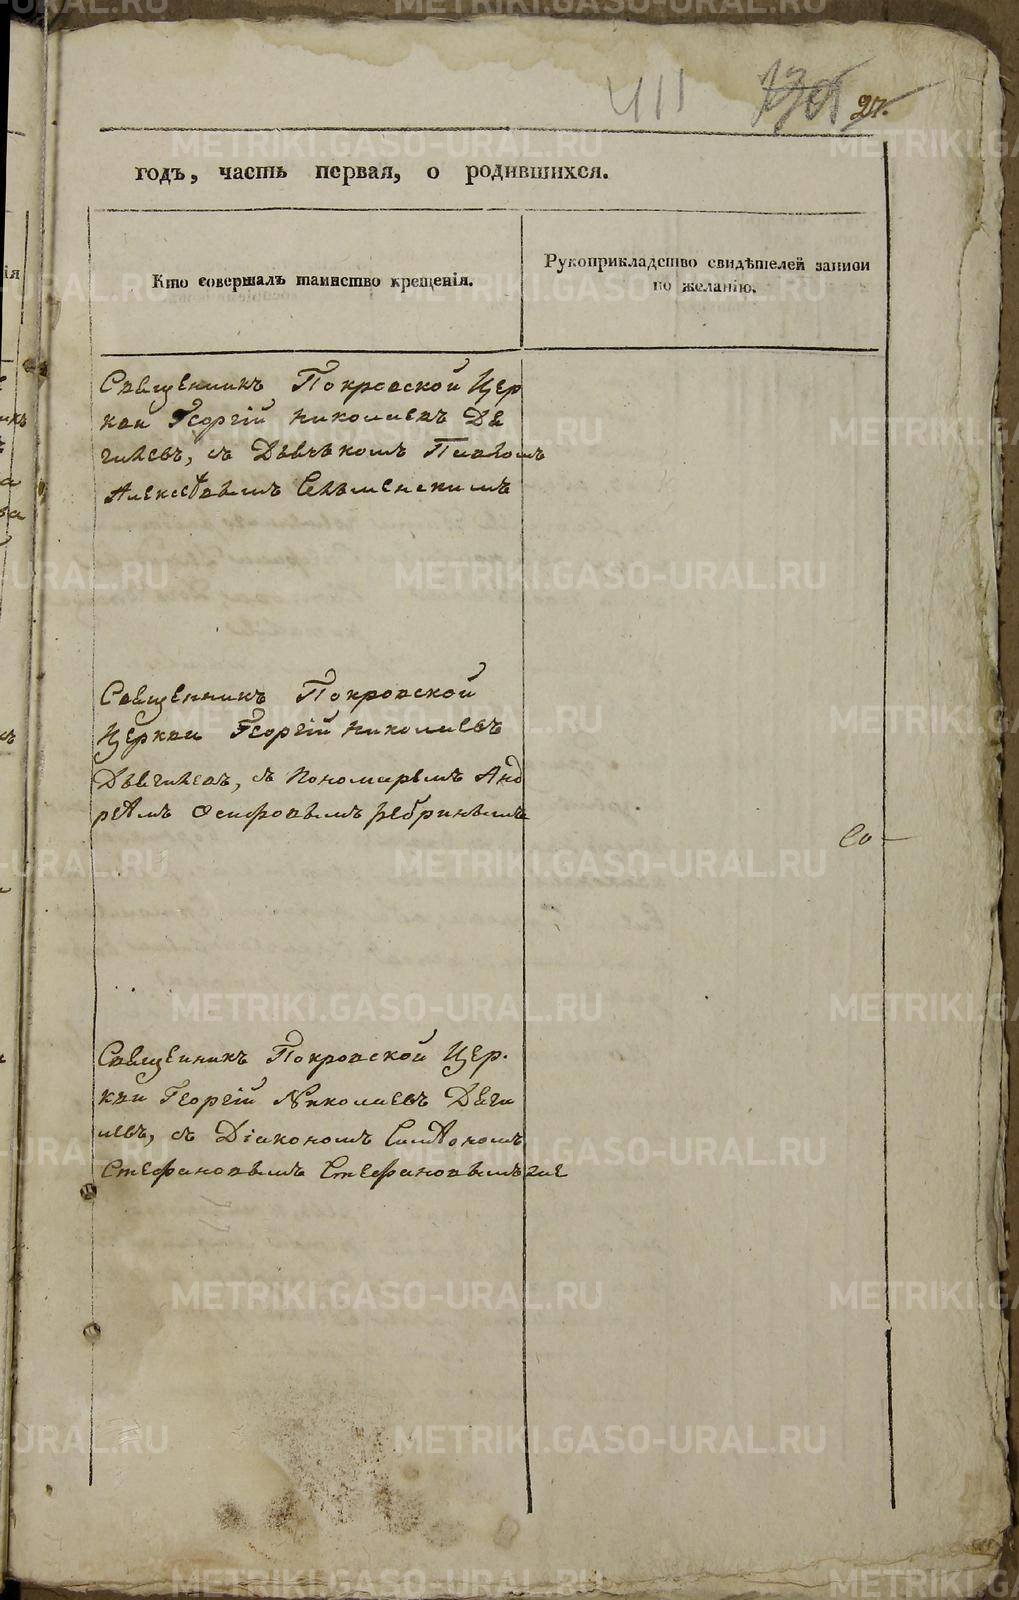 411
27.
годъ, часть первая, о родившихся.
Кто совершалъ таинство крещенія.
Рукоприкладство свидѣтелей записи
по желанію.
Священникъ Покровской Цер
кви Георгій Николаевъ Дя
гилевъ, съ Дьячькомъ Павломъ
Алексѣевымъ
Священникъ Покровской
Церкви Георгій Николаевъ
съ пономаремъ Анд
Осиповымъ Ребринымъ
Священникъ Покровской Цер-
кви Георгій Николаевъ Дяги
левъ, съ Діакономъ
Стефановымъ Стефановымъ же
METRIKI.GASO-URAL.RU